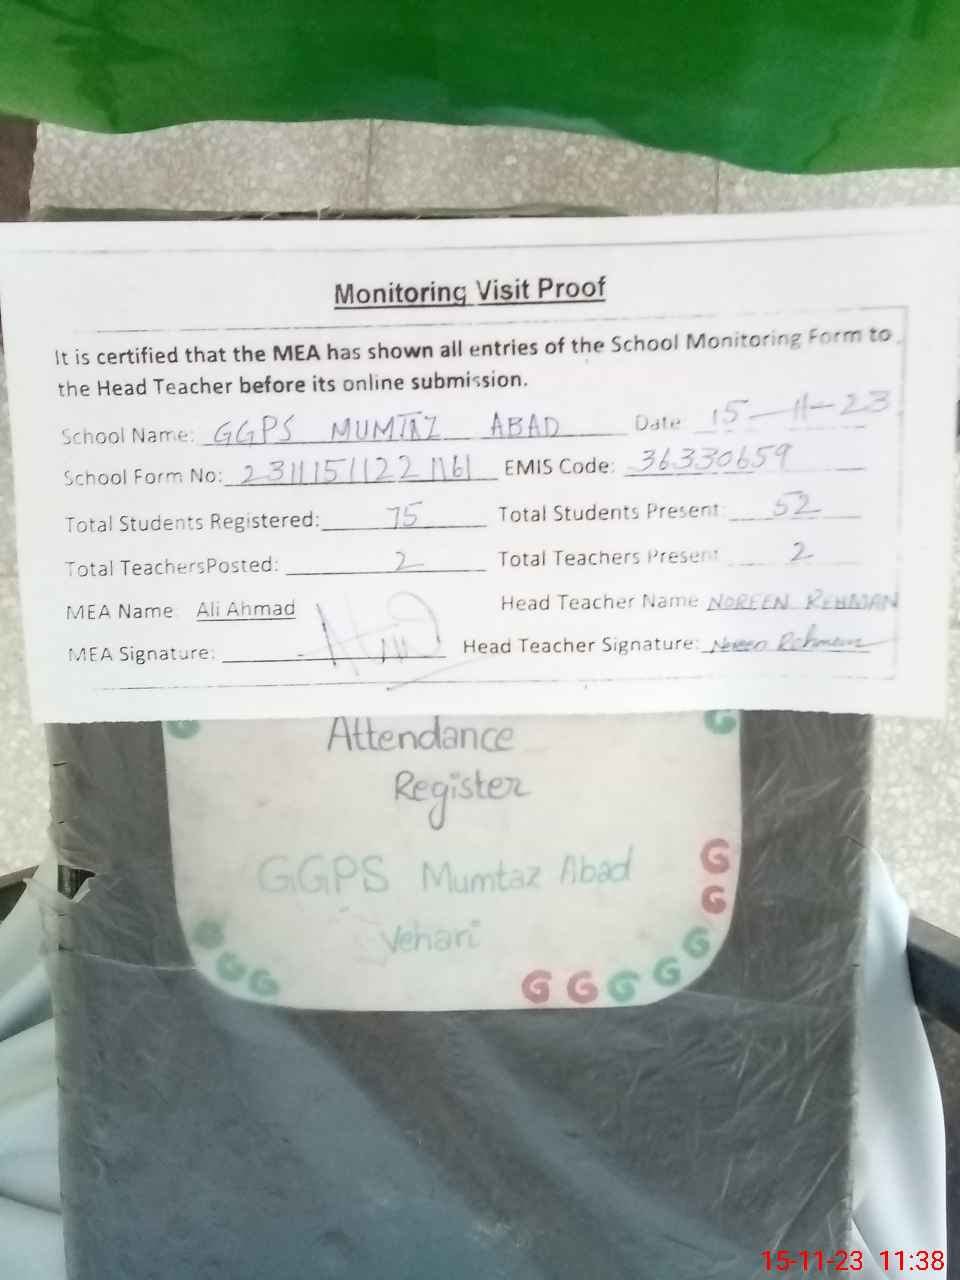 Monitoring Visit Proof
It is certified that the MEA has shown all entries of the School Monitoring Form to
the Head Teacher before its online submission.
School Name: GGPS MUMTAZ ABAD Date: 15-11-23
School Form No: 23111511221161 EMIS Code: 36330659
Total Students Registered: 75 Total Students Present: 52
Total TeachersPosted: 2 Total Teachers Present 2
MEA Name Ali Ahmad Head Teacher Name NOREEN REHMAN
MEA Signature: Head Teacher Signature: Noreen Rehman
Attendance
Register
GGPS Mumtaz Abad
Vehari
15-11-23 11:38